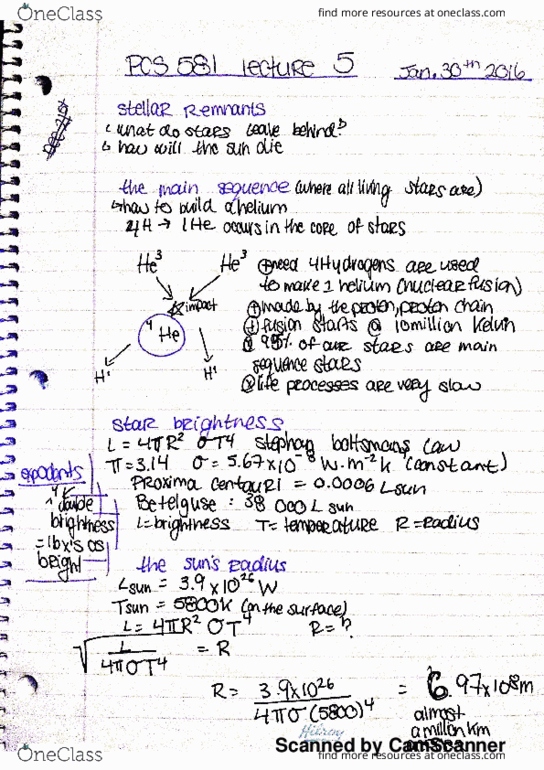 OneClass
find more resources at oneclass.com
find more resources at oneclass.com
PCS 581 lecture 5
Jan. 30th 2016
stellar remnants
what do stars leave behind?
how will the sun die
the main sequence (where all living stars are)
how to build a helium
4H → 1He occurs in the core of stars
He³ He³
impact
⁴He
H¹ H¹
need 4Hydrogens are used
to make 1 helium (nuclear fusion)
made by the proton, proton chain
fusion starts @ 10 million kelvin
% of our stars are main
sequence stars
life processes are very slow
star brightness
L = 4πR² σT⁴ stephan boltsmans law
π = 3.14 σ = 5.67x10⁻⁸ W·m⁻²k (constant)
Proxima centauri = 0.0006 Lsun
Betelguse : 38 000 L sun
L=brightness T= temperature R=radius
expodants
brightness
= 16x's as
bright
the sun's radius
Lsun = 3.9 x10²⁶ W
Tsun = 5800K (on the surface)
L = 4πR² σT⁴ R = ?
√ L / 4πσT⁴ = R
R = 3.9x10²⁶ / 4πσ(5800)⁴ = 6.97x10⁸m
almost
a million km
Scanned by CamScanner
OneClass
find more resources at oneclass.com